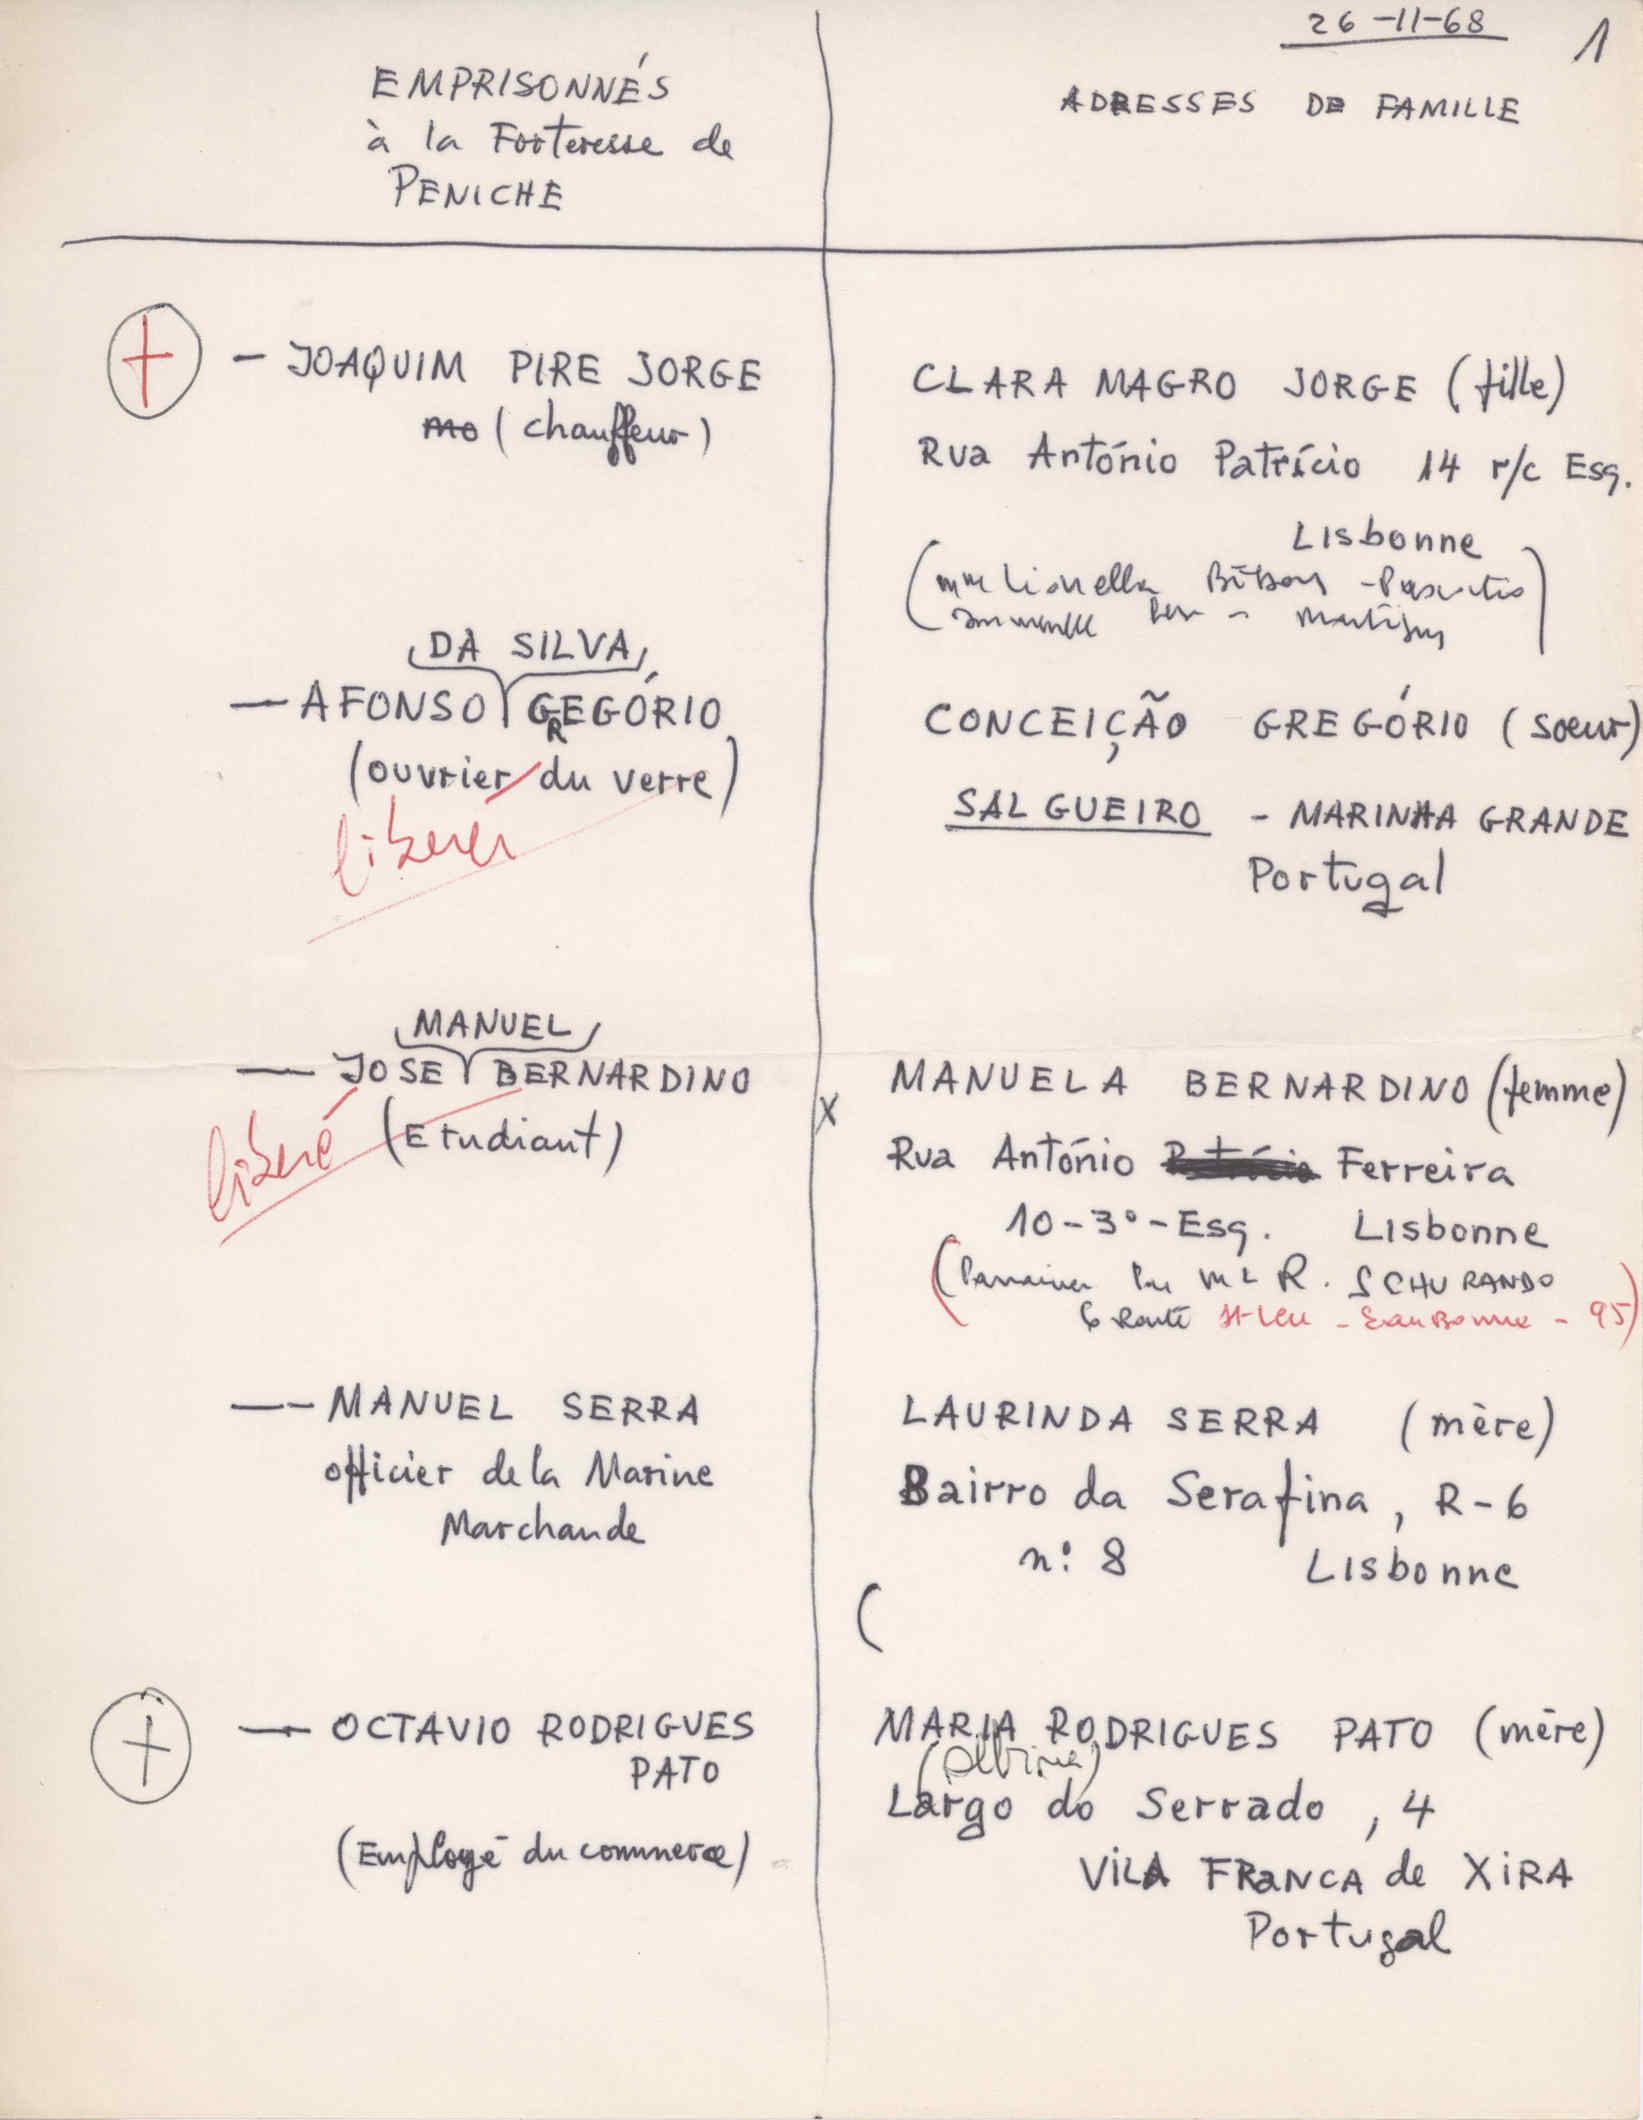 26-11-68
1
EMPRISONNÉS
à la Forteresse de
PENICHE
ADRESSES DE FAMILLE
— JOAQUIM PIRE JORGE
mo (chauffeur)
CLARA MAGRO JORGE (fille)
Rua António Patrício 14 r/c Esq.
Lisbonne
DA SILVA
— AFONSO GREGÓRIO
(ouvrier du verre)
CONCEIÇÃO GREGÓRIO (soeur)
SALGUEIRO - MARINHA GRANDE
Portugal
MANUEL
— JOSE BERNARDINO
(Etudiant)
liberé
X
MANUELA BERNARDINO (femme)
Rua António Patrício Ferreira
10-3º-Esq. Lisbonne
R. SCHURANDO
6 Route St-Leu - EauBonne - 95)
—- MANUEL SERRA
officier de la Marine
Marchande
LAURINDA SERRA (mère)
Bairro da Serafina, R-6
nº 8 Lisbonne
(
— OCTAVIO RODRIGUES
PATO
(Employé du commerce)
MARIA RODRIGUES PATO (mère)
(Albina)
Largo do Serrado, 4
VILA FRANCA de XIRA
Portugal